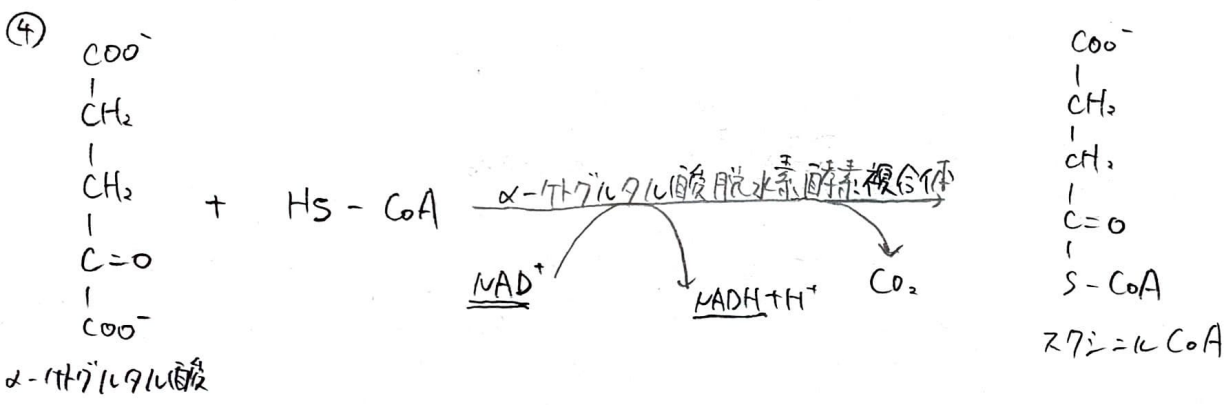 ④
COO⁻
CH₂
CH₂
C=O
COO⁻
α-ケトグルタル酸
+
HS - CoA
α-ケトグルタル酸脱水素酵素複合体
NAD⁺
NADH+H⁺
CO₂
COO⁻
CH₂
CH₂
C=O
S - CoA
スクシニル CoA